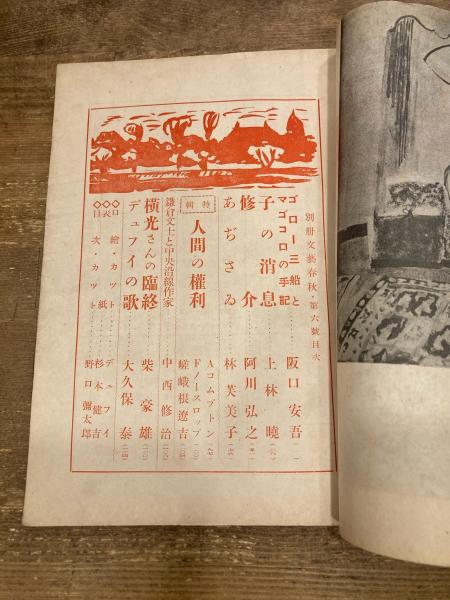 別册文藝春秋・第六號目次
ゴロー三船と
マゴコロの手記……阪口安吾
子の消息……上林曉
修介……阿川弘之
あぢさゐ……林芙美子
特輯
人間の權利
Aコムプトン
Fノースロップ
嵯峨根遼吉
鎌倉文士と中央沿線作家……中西修治
横光さんの臨終……柴豪雄
デュフイの歌……大久保泰
口繪・カット……デュフイ
表紙……杉本健吉
目次・カット……野口彌太郎